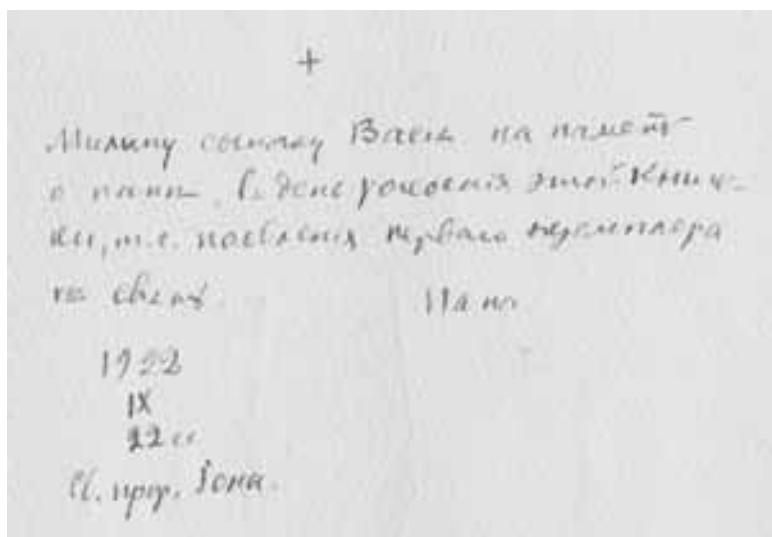 +
Милому сыночку Васе на память
о папе. В день рождения этой книж-
ки, т.е. появления перваго экземпляра
на светъ. Папа.
1922
IX
22
Св. прор. Iона.